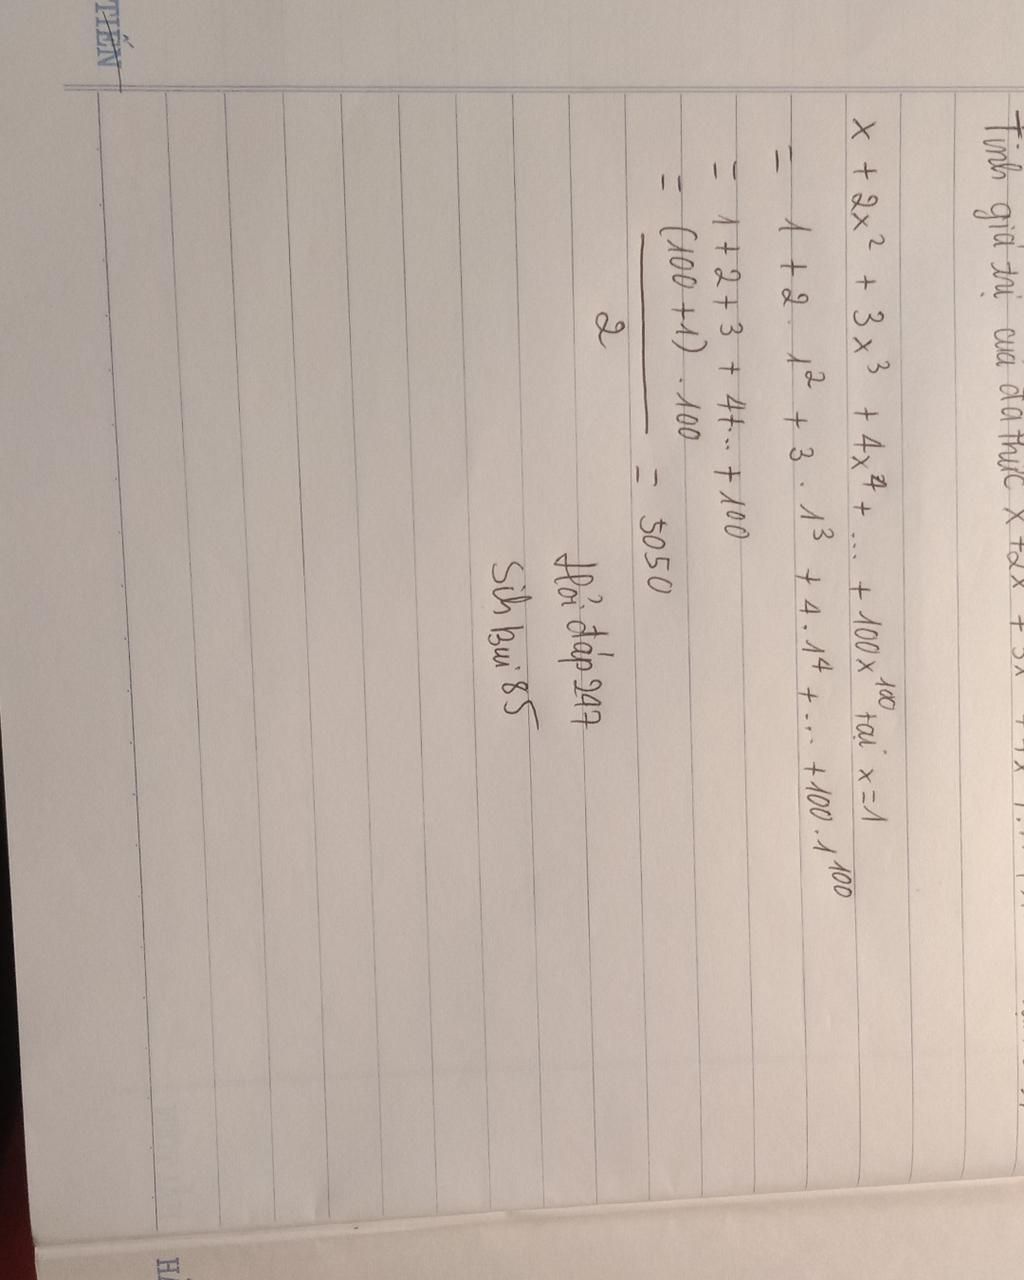 Tính giá trị của đa thức x + 2x + 3x + 4x
x + 2x² + 3x³ + 4x⁴ + ... + 100x¹⁰⁰ tại x = 1
= 1 + 2 . 1² + 3 . 1³ + 4 . 1⁴ + ... + 100 . 1¹⁰⁰
= 1 + 2 + 3 + 4 + ... + 100
= (100 + 1) . 100
= 5050
2
Hỏi đáp 247
Sihbui85
TIẾN